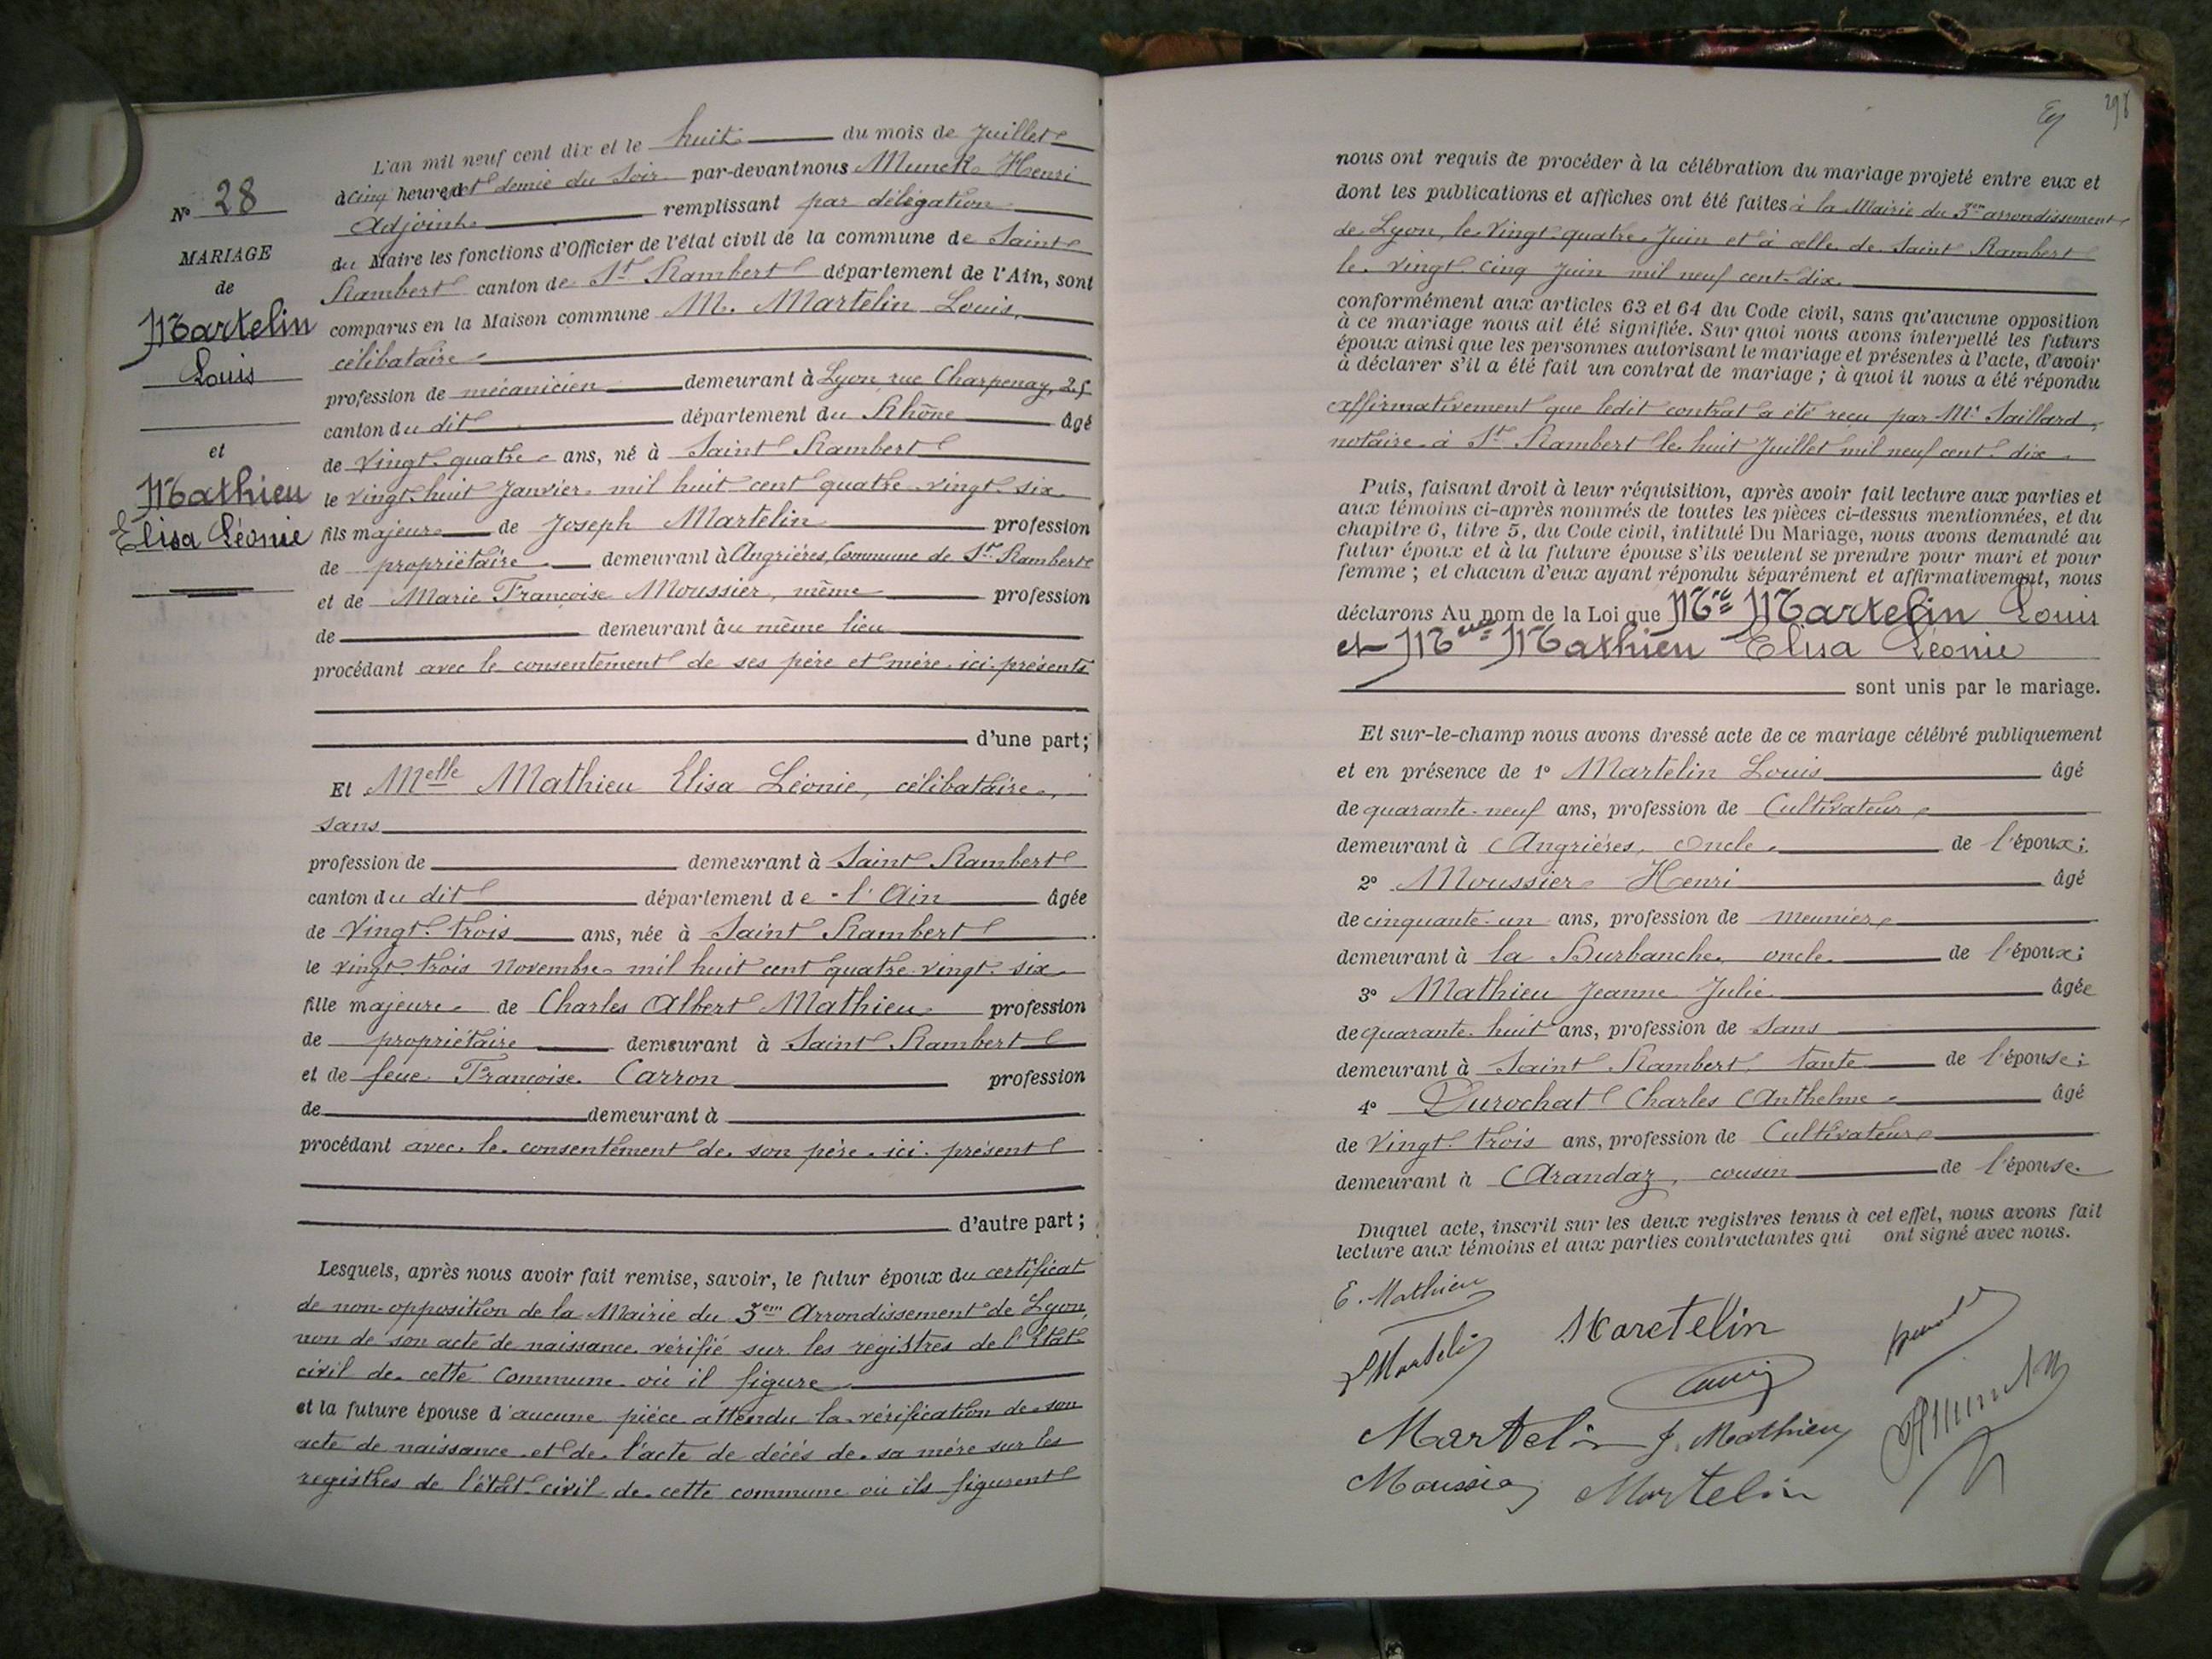 L'an mil neuf cent dix et le huit du mois de Juillet
à cinq heures et demie du soir par-devant nous Munck Henri
Adjoint remplissant par délégation
du Maire les fonctions d'Officier de l'état civil de la commune de Saint
Rambert canton de St Rambert département de l'Ain, sont
comparus en la Maison commune M. Martelin Louis,
célibataire
profession de mécanicien demeurant à Lyon, rue Charpenay, 25
canton du dit département du Rhône âgé
de vingt-quatre ans, né à Saint Rambert
le vingt-huit Janvier mil huit cent quatre-vingt-six
fils majeur de Joseph Martelin profession
de propriétaire demeurant à Angrières, Commune de St Rambert
et de Marie Françoise Moussier, même profession
de demeurant au même lieu
procédant avec le consentement de ses père et mère ici présents
d'une part;
Nº 28
MARIAGE
de
Martelin
Louis
et
Mathieu
Elisa Léonie
Et Melle Mathieu Elisa Léonie, célibataire,
sans
profession de demeurant à Saint Rambert
canton du dit département de l'Ain âgée
de vingt-trois ans, née à Saint Rambert
le vingt-trois Novembre mil huit cent quatre-vingt-six
fille majeure de Charles Albert Mathieu profession
de propriétaire demeurant à Saint Rambert
et de feue Françoise Carron profession
de demeurant à
procédant avec le consentement de son père ici présent
d'autre part;
Lesquels, après nous avoir fait remise, savoir, le futur époux du certificat
de non-opposition de la Mairie du 3em Arrondissement de Lyon,
non de son acte de naissance vérifié sur les registres de l'Etat
civil de cette Commune où il figure
et la future épouse d'aucune pièce attendu la vérification de son
acte de naissance et de l'acte de décès de sa mère sur les
registres de l'état-civil de cette commune où ils figurent
298
nous ont requis de procéder à la célébration du mariage projeté entre eux et
dont les publications et affiches ont été faites à la Mairie du 3em arrondissement
de Lyon, le vingt-quatre Juin et à celle de Saint Rambert
le vingt-cinq Juin mil neuf cent-dix.
conformément aux articles 63 et 64 du Code civil, sans qu'aucune opposition
à ce mariage nous ait été signifiée. Sur quoi nous avons interpellé les futurs
époux ainsi que les personnes autorisant le mariage et présentes à l'acte, d'avoir
à déclarer s'il a été fait un contrat de mariage; à quoi il nous a été répondu
affirmativement que ledit contrat a été reçu par Me Saillard,
notaire à St Rambert le huit Juillet mil neuf cent-dix.
Puis, faisant droit à leur réquisition, après avoir fait lecture aux parties et
aux témoins ci-après nommés de toutes les pièces ci-dessus mentionnées, et du
chapitre 6, titre 5, du Code civil, intitulé Du Mariage, nous avons demandé au
futur époux et à la future épouse s'ils veulent se prendre pour mari et pour
femme; et chacun d'eux ayant répondu séparément et affirmativement, nous
déclarons Au nom de la Loi que Mr Martelin Louis
et Melle Mathieu Elisa Léonie
sont unis par le mariage.
Et sur-le-champ nous avons dressé acte de ce mariage célébré publiquement
et en présence de 1º Martelin Louis âgé
de quarante-neuf ans, profession de Cultivateur
demeurant à Angrières, oncle de l'époux;
2º Moussier Henri âgé
de cinquante-un ans, profession de meunier,
demeurant à la Burbanche, oncle de l'époux;
3º Mathieu Jeanne Julie âgée
de quarante-huit ans, profession de sans
demeurant à Saint Rambert, tante de l'épouse;
4º Durochat Charles Anthelme âgé
de vingt-trois ans, profession de Cultivateur
demeurant à Arandaz, cousin de l'épouse.
Duquel acte, inscrit sur les deux registres tenus à cet effet, nous avons fait
lecture aux témoins et aux parties contractantes qui ont signé avec nous.
E. Mathieu
L Martelin Martelin
Martelin J. Mathieu
Martelin